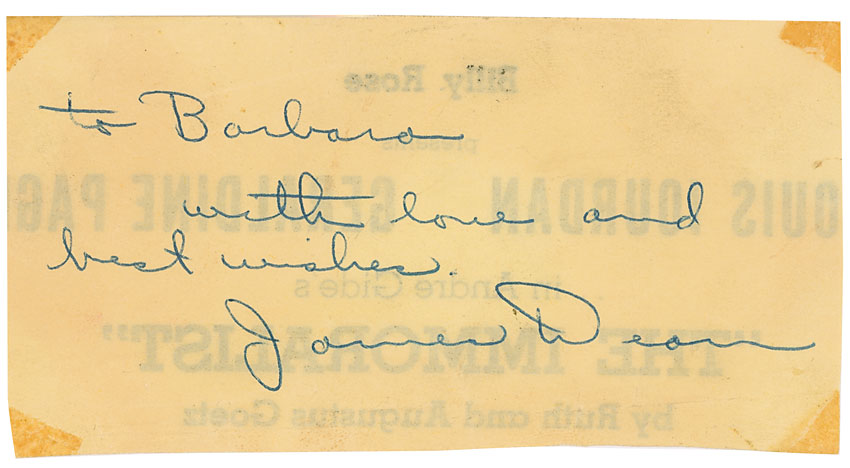 Billy Rose
to Barbara
presents
OUIS JOURDAN GERALDINE PAG
with love and
best wishes.
in Andre Gide's
James Dean
"THE IMMORALIST"
by Ruth and Augustus Goetz